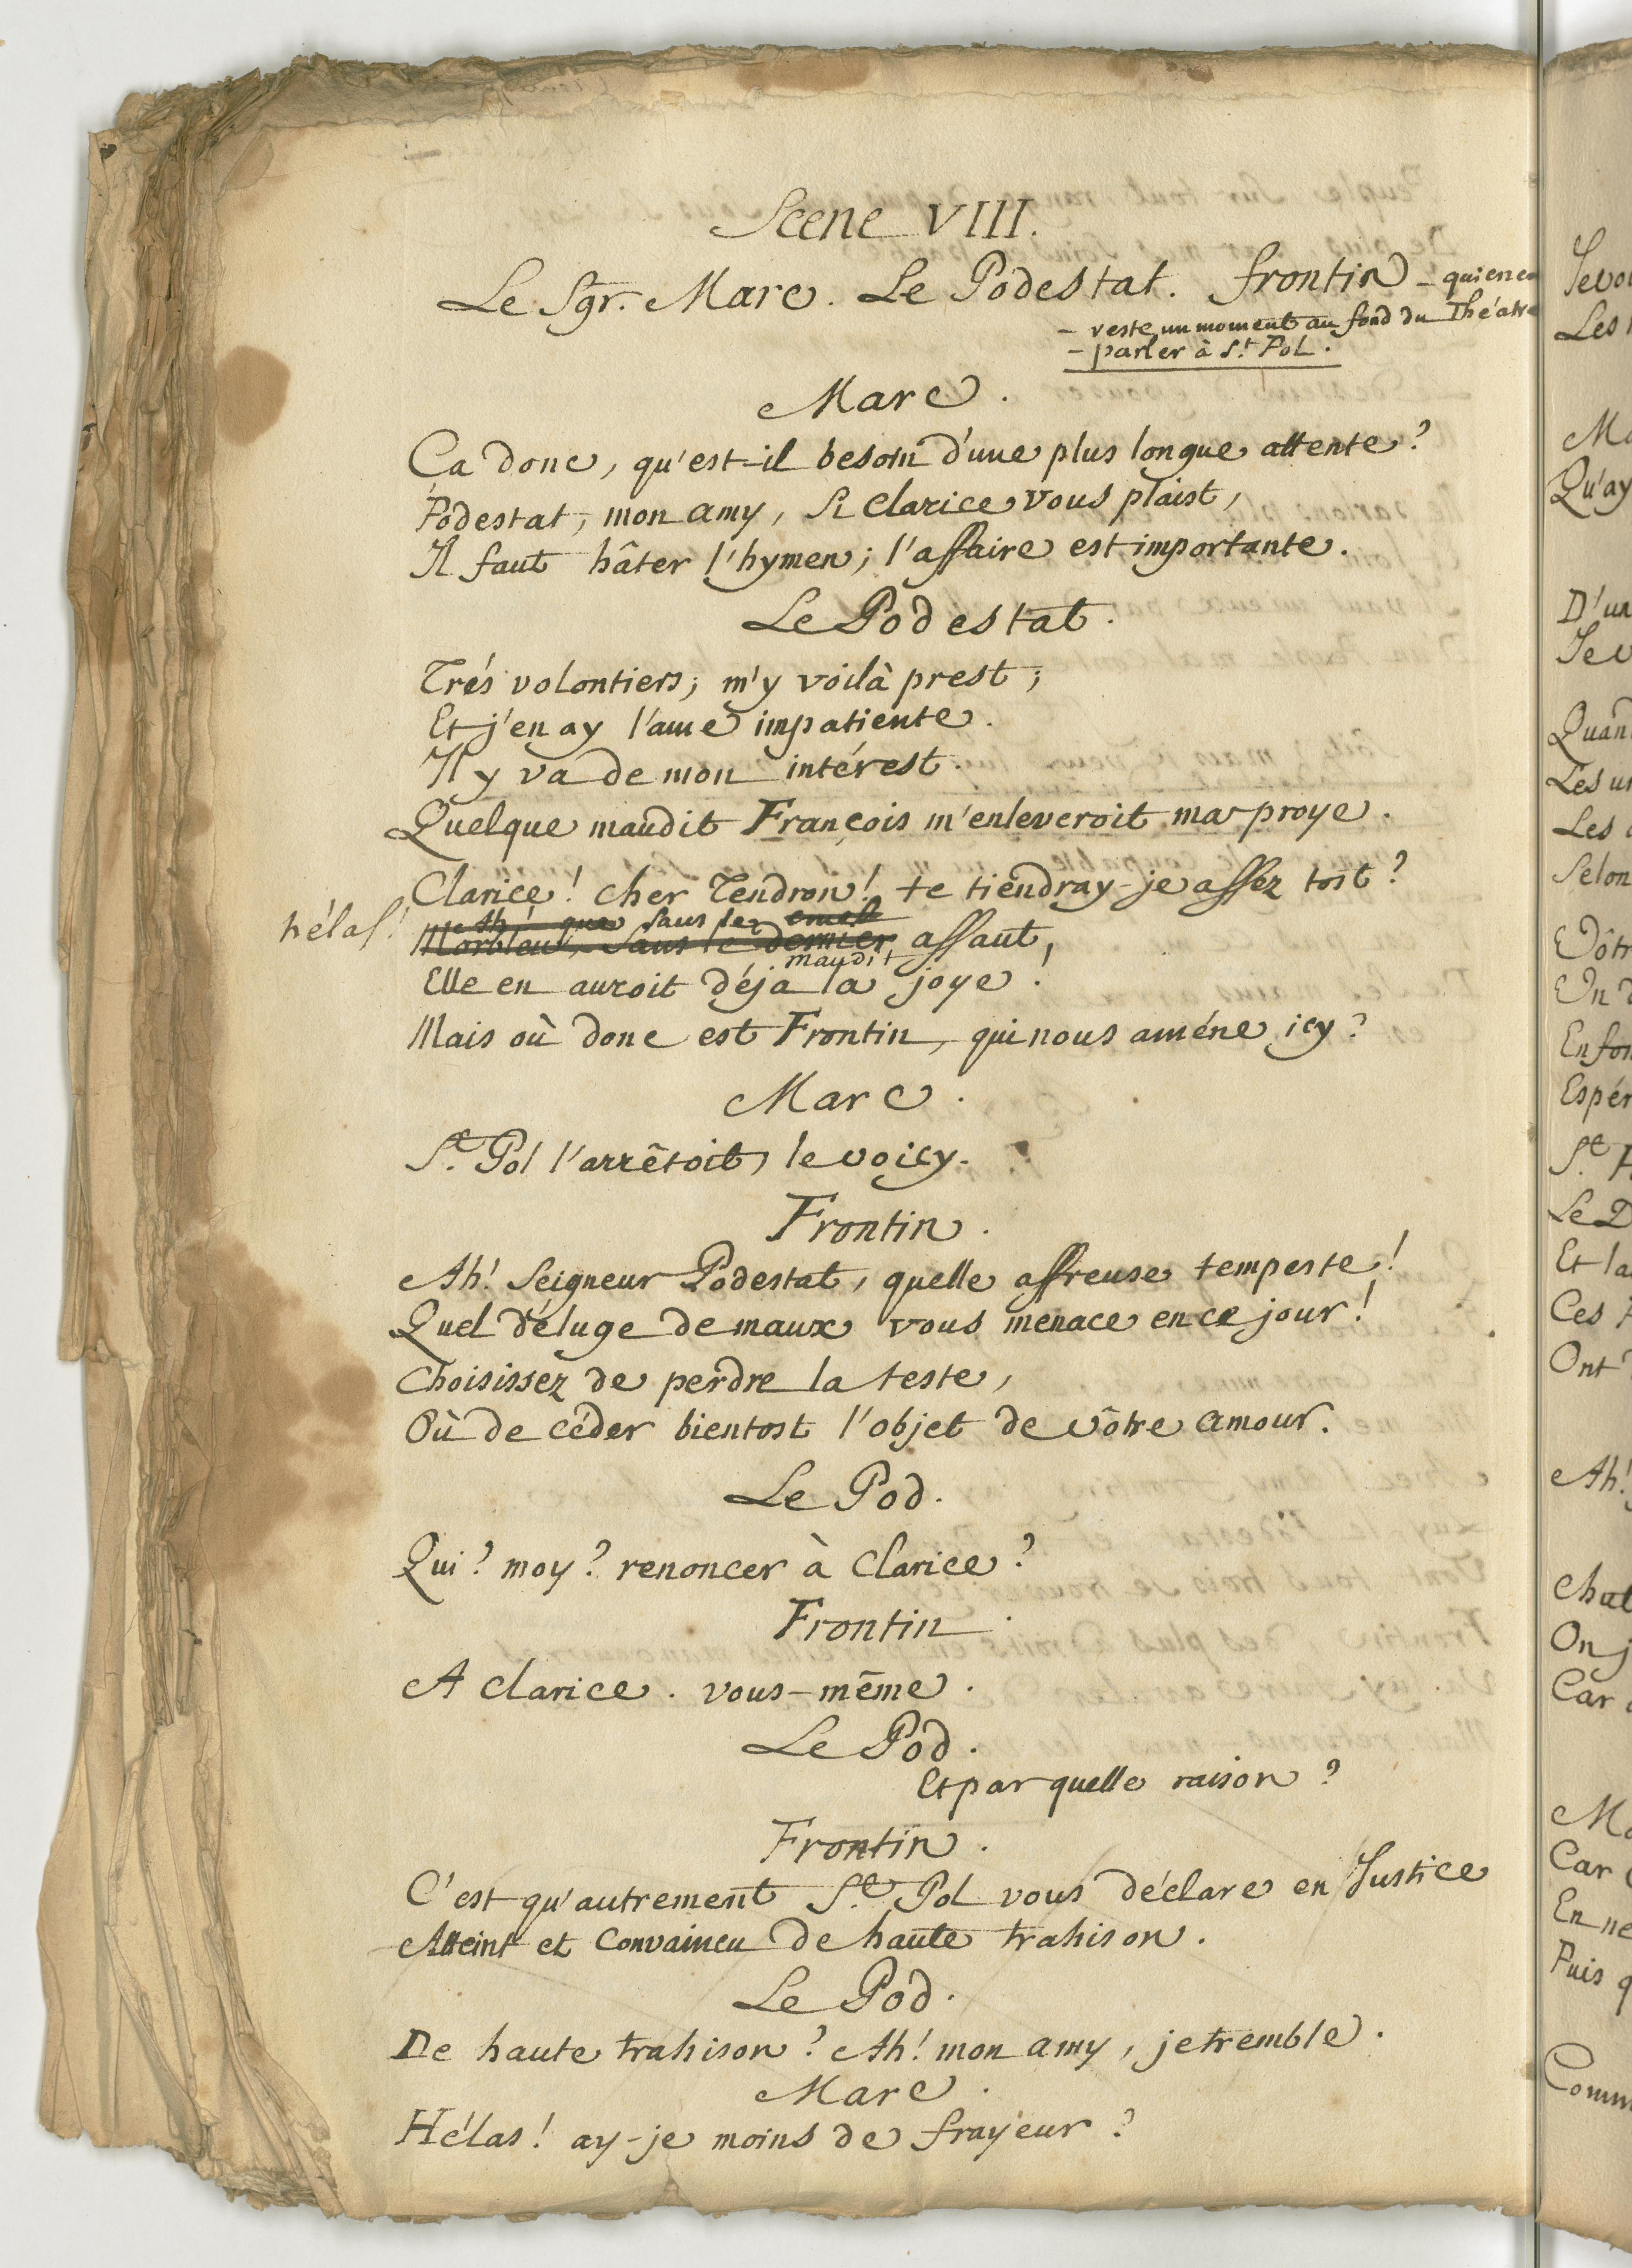 Scene VIII.
Le Sgr. Marc. Le Podestat. frontin - qui en en
- reste un moment au fond du Théatre
- parler à St. Pol.
Marc.
Ça donc, qu'est-il besoin d'une plus longue attente?
Podestat, mon amy, Si Clarice vous plaist,
Il faut hâter l'hymen; l'affaire est importante.
Le Podestat.
Trés volontiers; m'y voilà prest;
Et j'en ay l'ame impatiente.
Il y va de mon intérest.
Quelque maudit François m'enleveroit ma proye.
Clarice! cher Tendron! te tiendray-je assez tost?
hélas! Ah! que sans le cruel
Morbleu, sans le dernier assaut,
maudit
Elle en auroit déja la joye!
Mais où donc est Frontin, qui nous améne icy?
Marc.
St. Pol l'arrêtoit, le voicy.
Frontin.
Ah! Seigneur Podestat, quelle affreuse tempeste!
Quel déluge de maux vous menace en ce jour!
Choisissez de perdre la teste,
Où de céder bientost l'objet de vôtre amour.
Le Pod.
Qui? moy? renoncer à Clarice?
Frontin.
A Clarice. vous-même.
Le Pod.
Et par quelle raison?
Frontin.
C'est qu'autrement St. Pol vous déclare en Justice
Atteint et Convaincu de haute trahison.
Le Pod.
De haute trahison? Ah! mon amy, je tremble.
Marc.
Hélas! ay-je moins de frayeur?